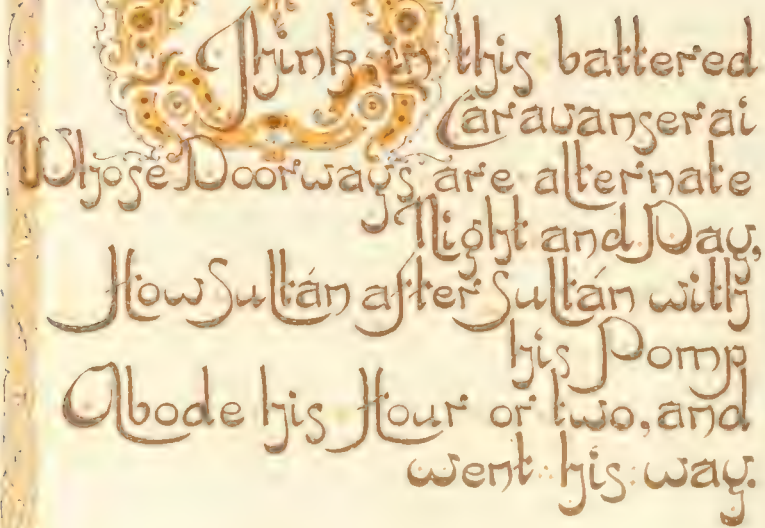 Think in this battered
Caravanserai
Whose Doorways are alternate
Night and Day,
How Sultán after Sultán with
his Pomp
Abode his Hour or two, and
went his way.